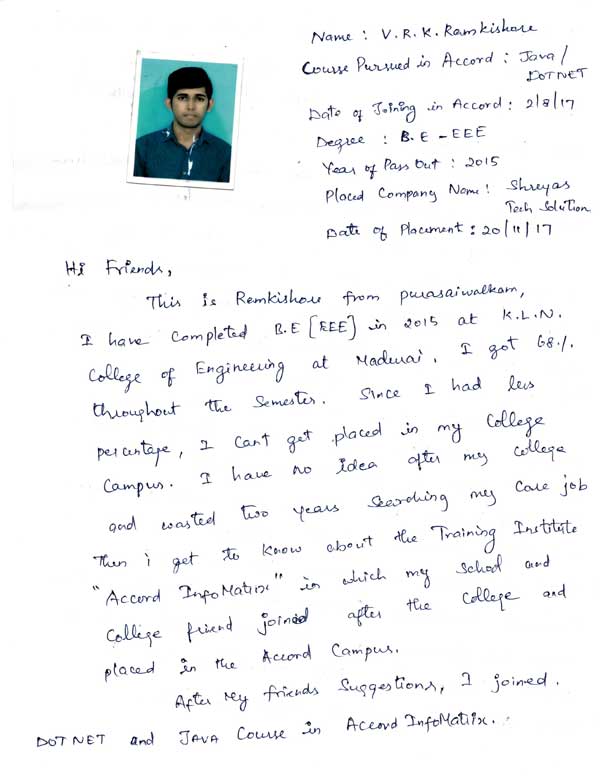 Name : V. R. K. Ramkishore
Course Pursued in Accord : Java /
DOTNET
Date of Joining in Accord : 2/8/17
Degree : B.E - EEE
Year of Pass Out : 2015
Placed Company Name : Shreyas
Tech Solution
Date of Placement : 20/11/17
Hi Friends,
This is Ramkishore from purasaiwalkam,
I have completed B.E [EEE] in 2015 at K.L.N.
College of Engineering at Madurai. I got 68%
throughout the Semester. Since I had less
percentage, I cant get placed in my College
Campus. I have no idea after my college
and wasted two years searching my core job
Then i get to know about the Training Institute
"Accord InfoMatrix" in which my school and
college friend joined after the college and
placed in the Accord Campus.
After My friends Suggestions, I joined.
DOT NET and JAVA Course in Accord InfoMatrix.